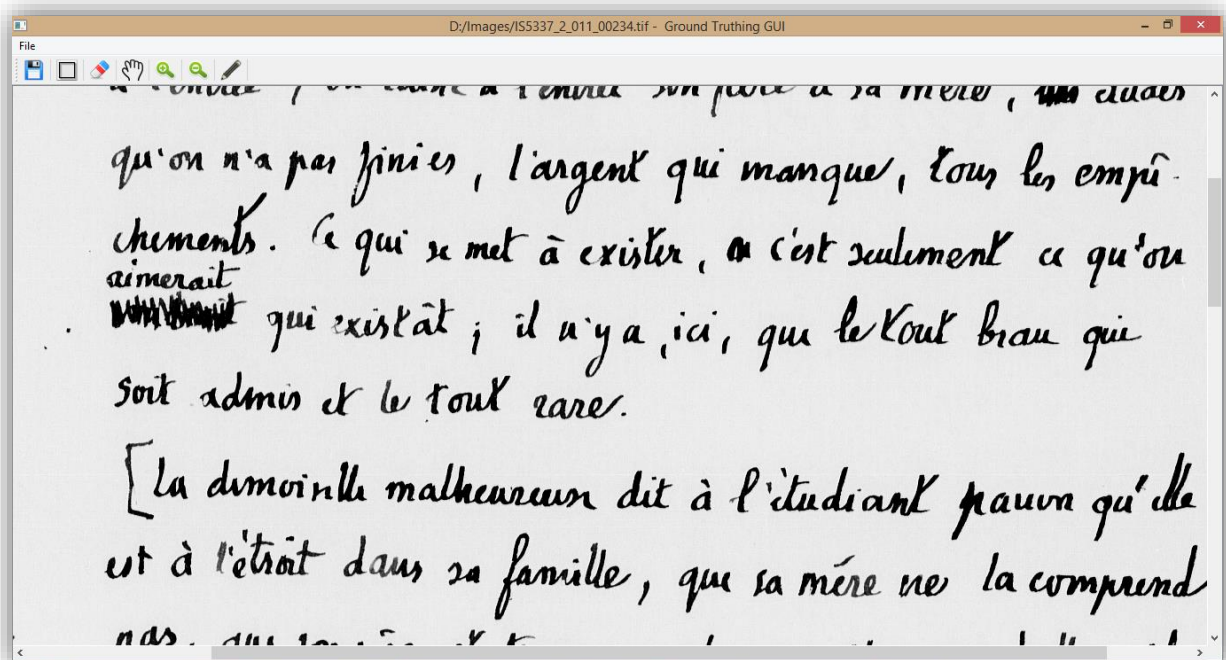 D:/Images/IS5337_2_011_00234.tif - Ground Truthing GUI
File
à sa mère,
qu'on n'a pas finies, l'argent qui manque, tous les empê-
chements. Ce qui se met à exister, c'est seulement ce qu'on
aimerait
qui existât ; il n'y a, ici, que le tout beau qui
soit admis et le tout rare.
[La demoiselle malheureuse dit à l'étudiant pauvre qu'elle
est à l'étroit dans sa famille, que sa mére ne la comprend
pas,